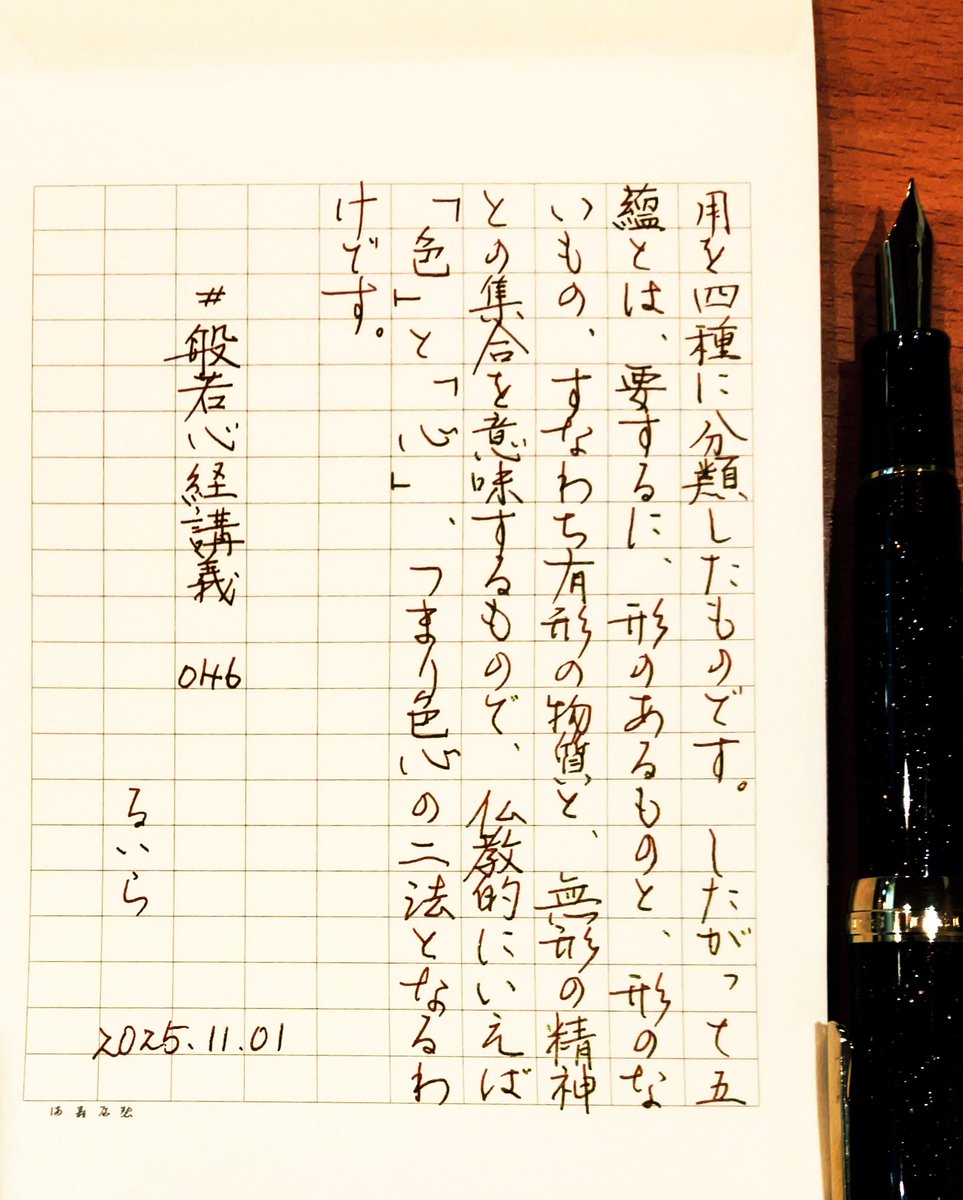 用を四種に分類したものです。したがって五
蘊とは、要するに、形のあるものと、形のな
いもの、すなわち有形の物質と、無形の精神
との集合を意味するもので、仏教的にいえば
「色」と「心」、つまり色心の二法となるわ
けです。
#般若心経講義 046
るいら
2025.11.01